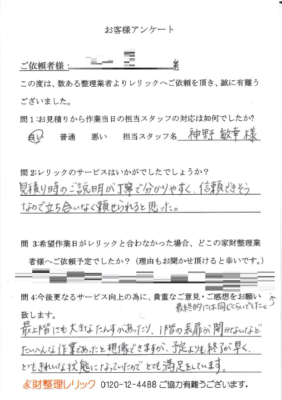 お客様アンケート
ご依頼者様:
この度は、数ある整理業者よりレリックへご依頼を頂き、誠に有難う
ございました。
問1:お見積りから作業当日の担当スタッフの対応は如何でしたか?
良い 普通 悪い 担当スタッフ名 神野 敏幸 様
問2:レリックのサービスはいかがでしたでしょうか?
見積り時のご説明が丁寧で分かりやすく、信頼できそう
なので立ち合いなく頼せられると思った。
問3:希望作業日がレリックと合わなかった場合、どこの家財整理業
者様へご依頼予定でしたか?(理由もお聞かせ頂けると幸いです。)
問4:今後更なるサービス向上の為に、貴重なご意見・ご感想をお願い
致します。
最終的には同じくらいでしたね
最上階にも大きなたんすがあったり、1階の表扉が開かないなど
たいへんな作業であったと想像できますが、予定よりも終了が早く、
とてもきれいな状態になっていたのでとても満足をしています。
家財整理レリック 0120-12-4488 ご協力有難うございます。